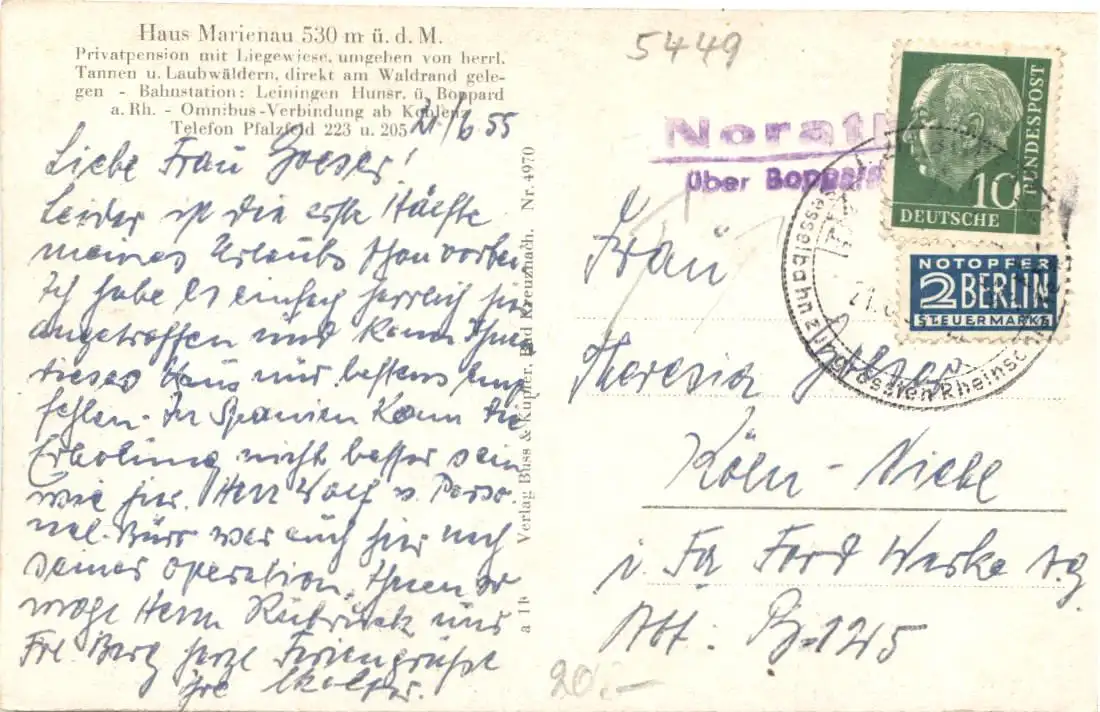 Haus Marienau 530 m ü. d. M.
Privatpension mit Liegewiese, umgeben von herrl.
Tannen u. Laubwäldern, direkt am Waldrand gele-
gen - Bahnstation: Leiningen Hunsr. ü. Boppard
a. Rh. - Omnibus-Verbindung ab Koblenz
Telefon Pfalzfeld 223 u. 205
21./6 55
Liebe Frau Goeser!
Leider ist die erste Hälfte
meines Urlaubs schon vorbei
Ich habe es einfach herrlich hier
angetroffen und kann Ihnen
dieses Haus nur bestens emp
fehlen. In Spanien kann die
Erholung nicht besser sein
wie hier. Herr Wolf v. Perso-
nal-Büro war auch hier nach
seiner Operation. Ihnen so
Herrn und
Frl. Berg herzl. Feriengrüße
Ihre
a 1b Verlag Buss & Küpfer, Bad Kreuznach. Nr. 4970
5449
Norath
über Boppard
BUNDESPOST
10
DEUTSCHE
NOTOPFER
2 BERLIN
STEUERMARKE
21.
Frau
Theresia Goeser
Köln-Niehl
i. Fa Ford Werke A.g
Abt:
20.-